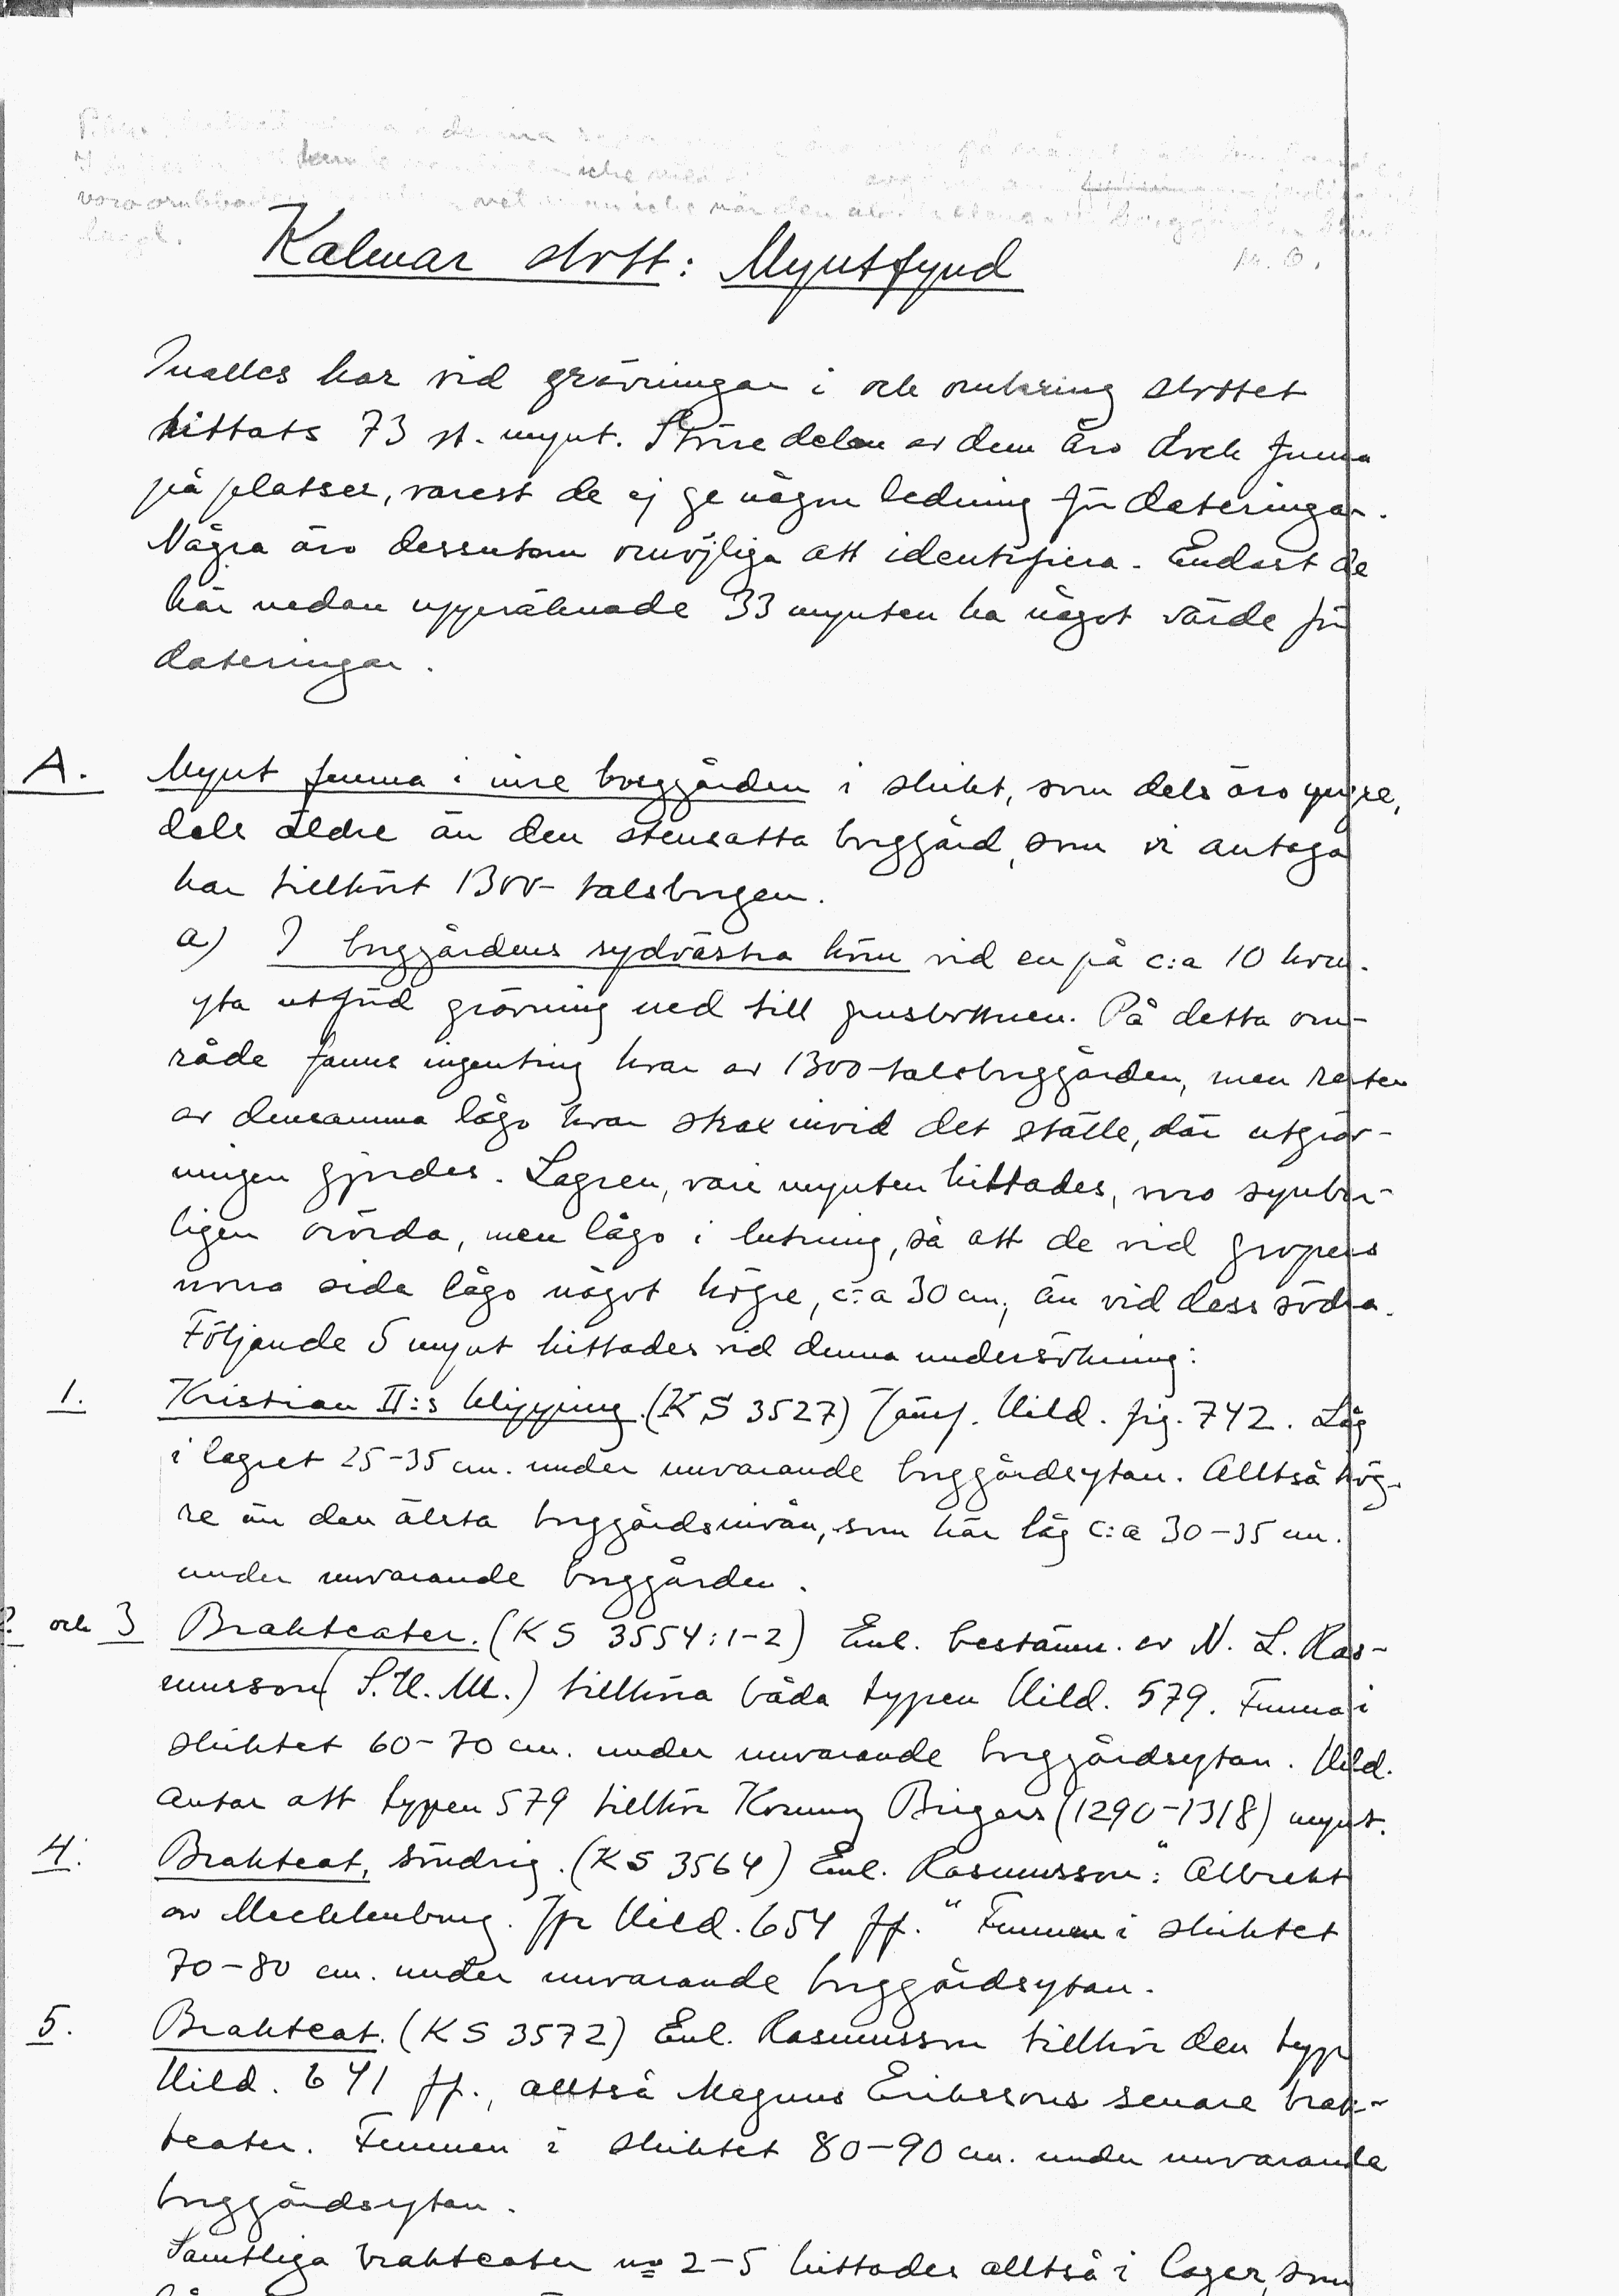 denna
icke
Kalmar slott: Myntfynd
M. O.
Inalles har vid grävningar i och omkring slottet
hittats 73 st. mynt. Större delen av dem äro dock funna
på platser, varest de ej ge någon ledning för dateringar.
Några äro dessutom omöjliga att identifiera. Endast de
här nedan uppräknade 33 mynten ha något värde för
dateringar.
A. Mynt funna i inre borggården i skikt, som dels äro yngre,
dels äldre än den stensatta borggård, som vi antaga
har tillhört 1300-talsborgen.
a) I borggårdens sydvästra hörn vid en på c:a 10 kvm.
yta utförd grävning ned till grusbottnen. På detta om-
råde fanns ingenting kvar av 1300-talsborggården, men rester
av densamma lågo kvar strax invid det ställe, där utgräv-
ningen gjordes. Lagren, vari mynten hittades, voro synbar-
ligen orörda, men lågo i lutning, så att de vid gropens
norra sida lågo något högre, c:a 30 cm, än vid dess södra.
Följande 5 mynt hittades vid denna undersökning:
1. Kristian II:s klipping. (KS 3527) Jämf. Hild. fig. 742. Låg
i lagret 25-35 cm. under nuvarande borggårdsytan. Alltså hög-
re än den älsta borggårdsnivån, som här låg c:a 30-35 cm.
under nuvarande borggården.
2 och 3 Brakteater. (KS 3554:1-2) Enl. bestämn. av N. L. Ras-
musson (S.H.M.) tillhöra båda typen Hild. 579. Funna i
skiktet 60-70 cm. under nuvarande borggårdsytan. Hild.
antar att typen 579 tillhör Konung Birgers (1290-1318) mynt.
4. Brakteat, söndrig. (KS 3564) Enl. Rasmusson: "Albrekt
av Mecklenburg. Jfr Hild. 654 ff." Funnen i skiktet
70-80 cm. under nuvarande borggårdsytan.
5. Brakteat. (KS 3572) Enl. Rasmusson tillhör den typ
Hild. 641 ff., alltså Magnus Erikssons senare brak-
teater. Funnen i skiktet 80-90 cm. under nuvarande
borggårdsytan.
Samtliga brakteater no 2-5 hittades alltså i lager, som